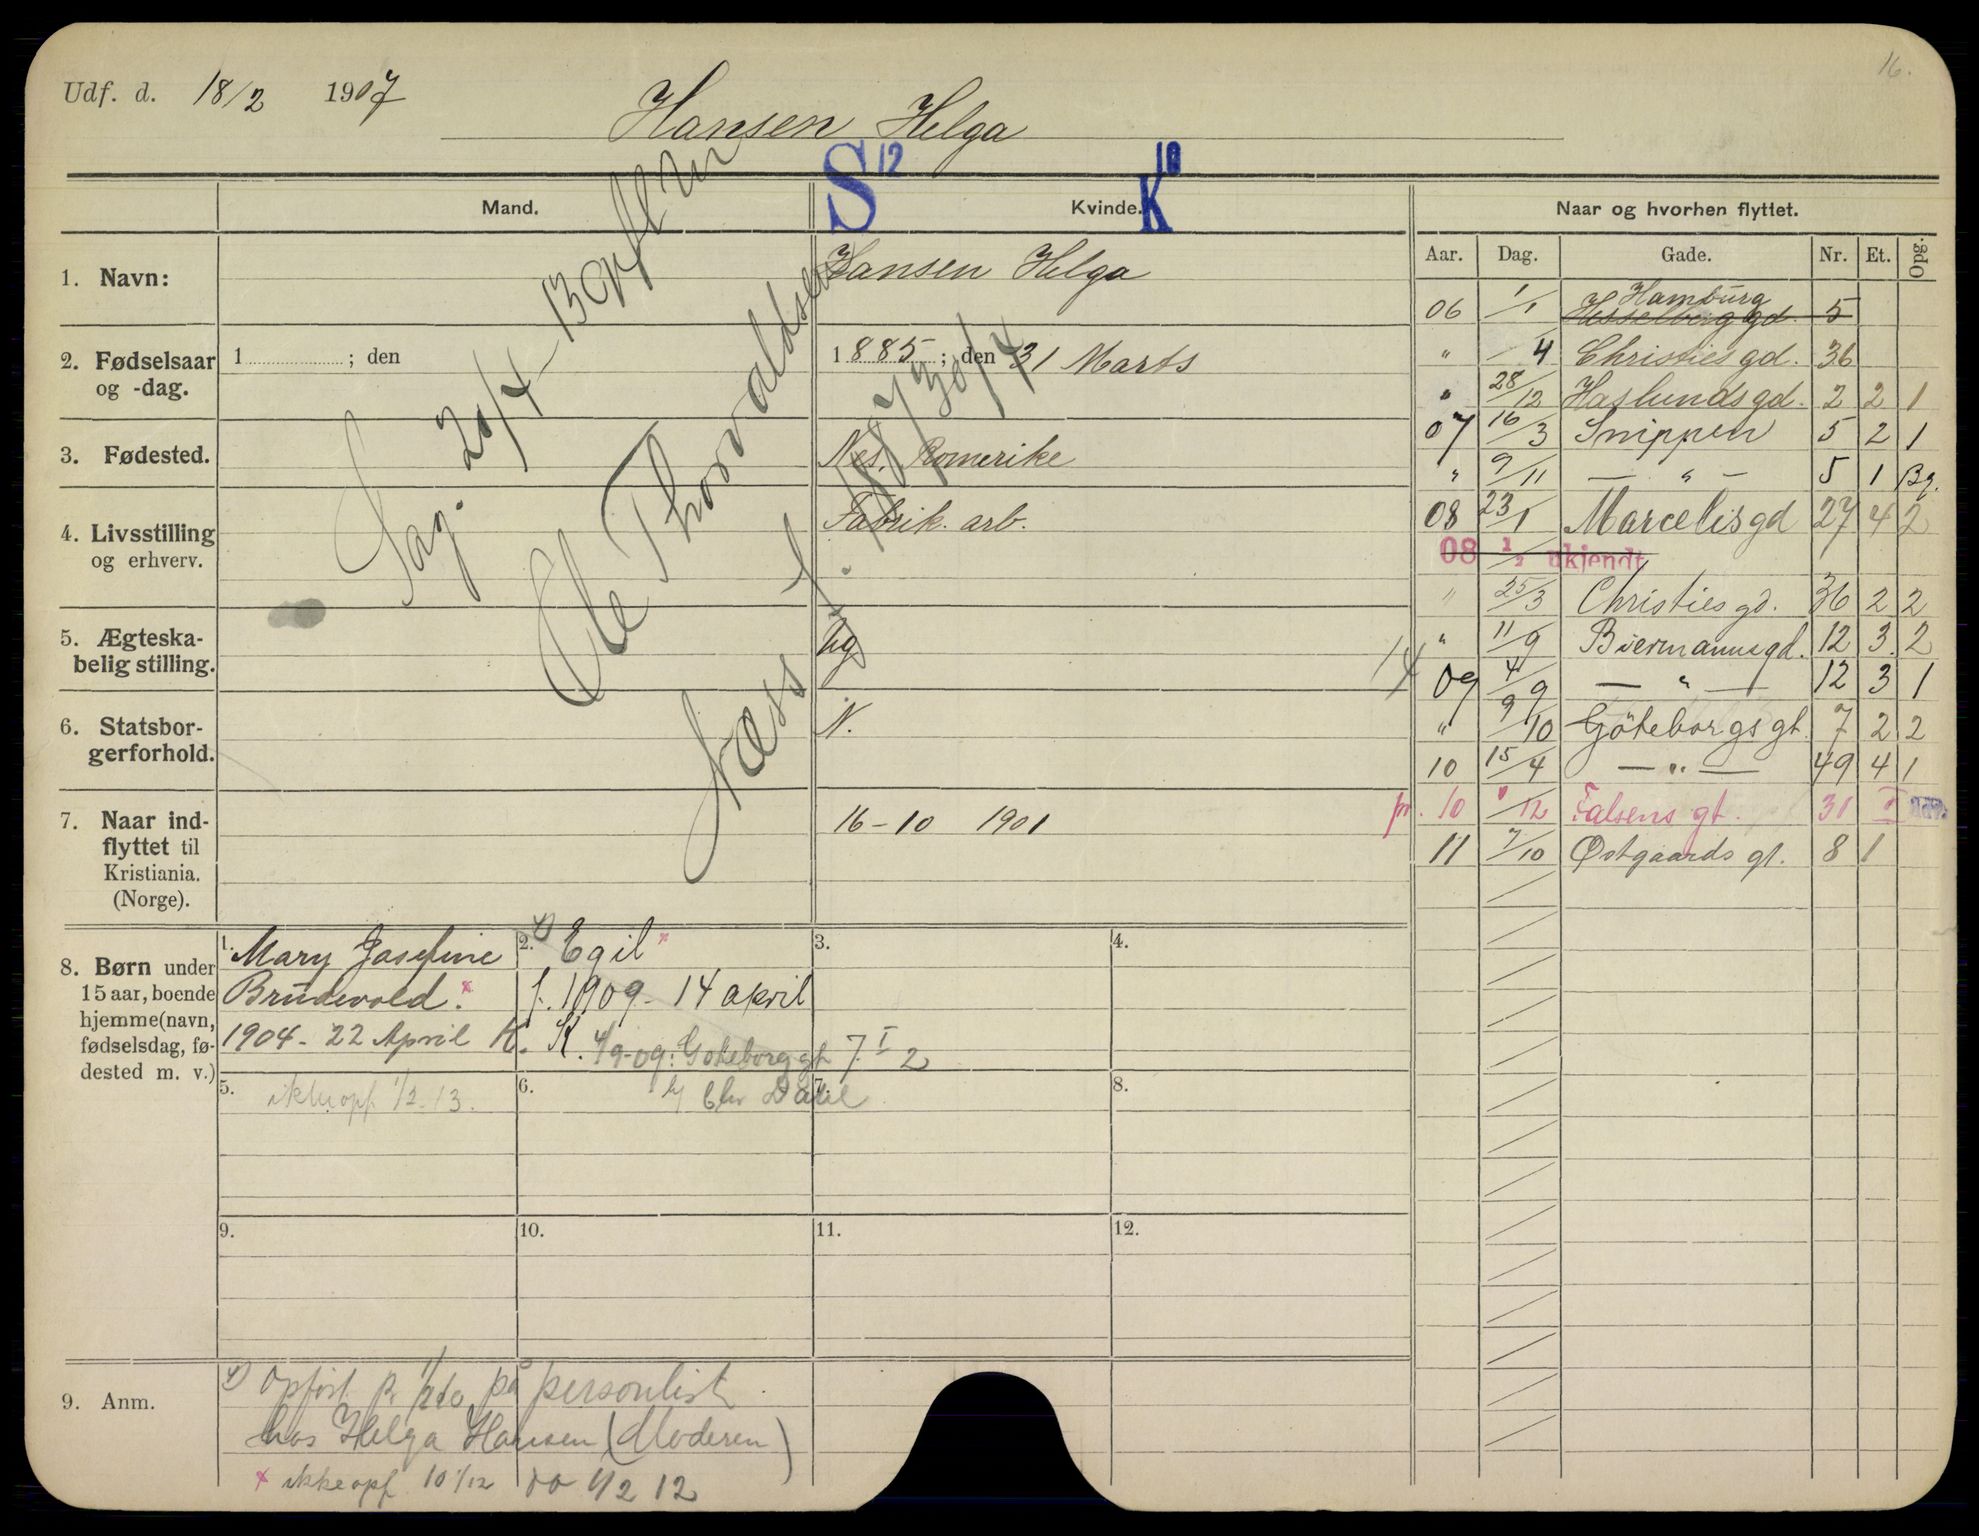 16.
Udf. d. 18/2 1907
Hansen Helga
S 12 K
Mand. Kvinde. Naar og hvorhen flyttet.
Aar. Dag. Gade. Nr. Et. Opg.
1. Navn: Hansen Helga
2. Fødselsaar og -dag. 1 ; den 1885 ; den 31 Marts
3. Fødested. Nes. Romerike
4. Livsstilling og erhverv. Fabrik. arb.
5. Ægteska-
belig stilling. ug
6. Statsbor-
gerforhold. N.
7. Naar ind-
flyttet til
Kristiania.
(Norge). 16-10 1901
20/4
Ole Thorvaldsen
Næss f. 30/4
Hamburg
06 1/1 Hesselberg gd. 5
" /4 Christies gd. 36
" 28/12 Haslunds gd. 2 2 1
07 16/3 Snippen 5 2 1
" 9/11 — " — 5 1 Bg.
08 23/1 Marcelis gd 27 4 2
08 1/2 ukjendt
" 25/3 Christies gd. 36 2 2
" 11/9 Biermanns gd. 12 3 2
09 4/9 — " — 12 3 1
" 9/10 Göteborgs gt. 7 2 2
10 15/4 — " — 49 4 1
pr. 10 1/12 Falsens gt. 31 I
11 7/10 Østgaards gt. 8 1
8. Børn under
15 aar, boende
hjemme (navn,
fødselsdag, fø-
dested m. v.)
1. Mary Josefine
Brudevold. x
1904 - 22 April K.
2. Egil x
f. 1909 - 14 april
K. 4/9-09: Goteborg gt 7 I 2
b/ Chr Dahl
3.
4.
5. ikke opf. 1/2-13.
6.
7.
8.
9.
10.
11.
12.
9. Anm.
Opført pr 1/12 10 på personlist
hos Helga Hansen (Moderen)
x ikke opf. 10 1/12 do 1/2 12